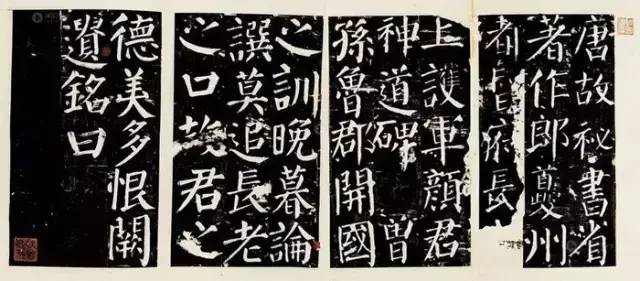 唐故祕書省
著作郎夔州
都督府長
上護軍顏君
神道碑　曾
孫魯郡開國
之訓晚暮論
譔莫追長老
之口故君之
德美多恨闕
遺銘曰